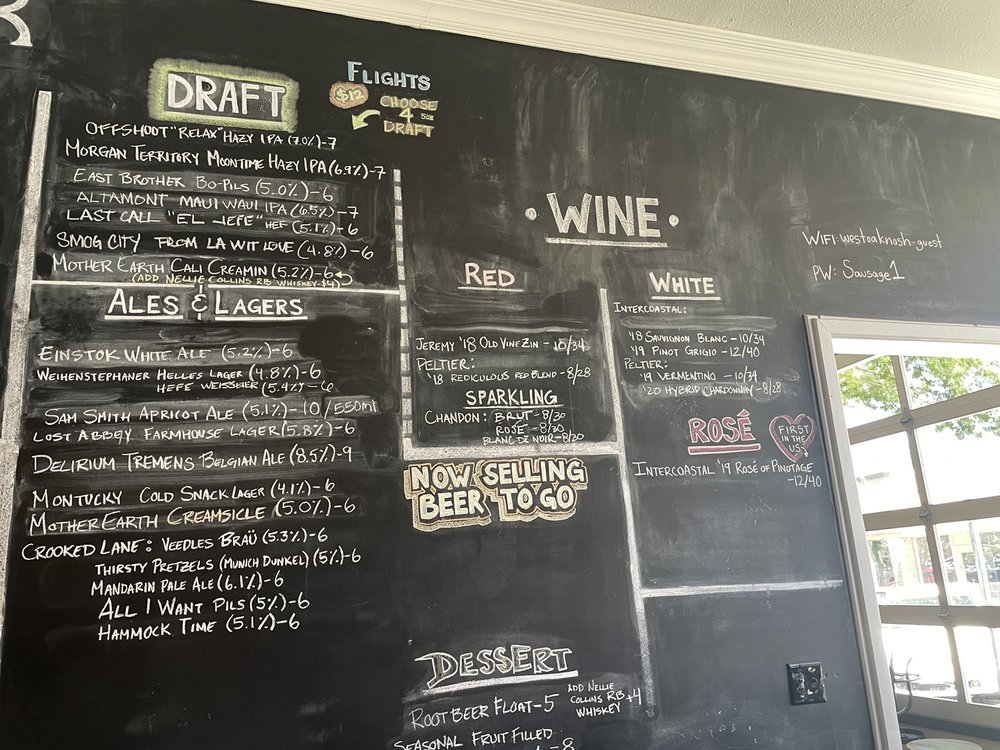 DRAFT
FLIGHTS
$12 CHOOSE
4 5oz
DRAFT
OFFSHOOT "RELAX" HAZY IPA (7.0%)-7
MORGAN TERRITORY MOONTIME HAZY IPA (6.9%)-7
EAST BROTHER BO-PILS (5.0%)-6
ALTAMONT MAUI WAUI IPA (6.5%)-7
LAST CALL "EL JEFE" HEF (5.1%)-6
SMOG CITY FROM LA WIT LOVE (4.8%)-6
MOTHER EARTH CALI CREAMIN (5.2%)-6
(ADD NELLIE COLLINS RB WHISKEY-$4)
ALES & LAGERS
EINSTOK WHITE ALE (5.2%)-6
WEIHENSTEPHANER HELLES LAGER (4.8%)-6
HEFE WEISSBIER (5.4%)-6
SAM SMITH APRICOT ALE (5.1%)-10/550ml
LOST ABBEY FARMHOUSE LAGER (5.8%)-6
DELIRIUM TREMENS BELGIAN ALE (8.5%)-9
MONTUCKY COLD SNACK LAGER (4.1%)-6
MOTHER EARTH CREAMSICLE (5.0%)-6
CROOKED LANE: VEEDLES BRAÜ (5.3%)-6
THIRSTY PRETZELS (MUNICH DUNKEL) (5%)-6
MANDARIN PALE ALE (6.1%)-6
ALL I WANT PILS (5%)-6
HAMMOCK TIME (5.1%)-6
• WINE •
RED
JEREMY '18 OLD VINE ZIN - 10/34
PELTIER:
'18 REDICULOUS RED BLEND - 8/28
SPARKLING
CHANDON: BRUT - 8/30
ROSÉ - 8/30
BLANC DE NOIR - 8/30
WHITE
INTERCOASTAL:
'18 SAUVIGNON BLANC - 10/34
'19 PINOT GRIGIO - 12/40
PELTIER:
'19 VERMENTINO - 10/34
'20 HYBRID CHARDONNAY - 8/28
ROSÉ
FIRST
IN THE
US!
INTERCOASTAL '19 ROSÉ OF PINOTAGE
-12/40
WIFI: westoaknosh-guest
PW: Sausage1
NOW SELLING
BEER TO GO
DESSERT
ROOT BEER FLOAT-5
ADD NELLIE
COLLINS RB +4
WHISKEY
SEASONAL FRUIT FILLED
- 8